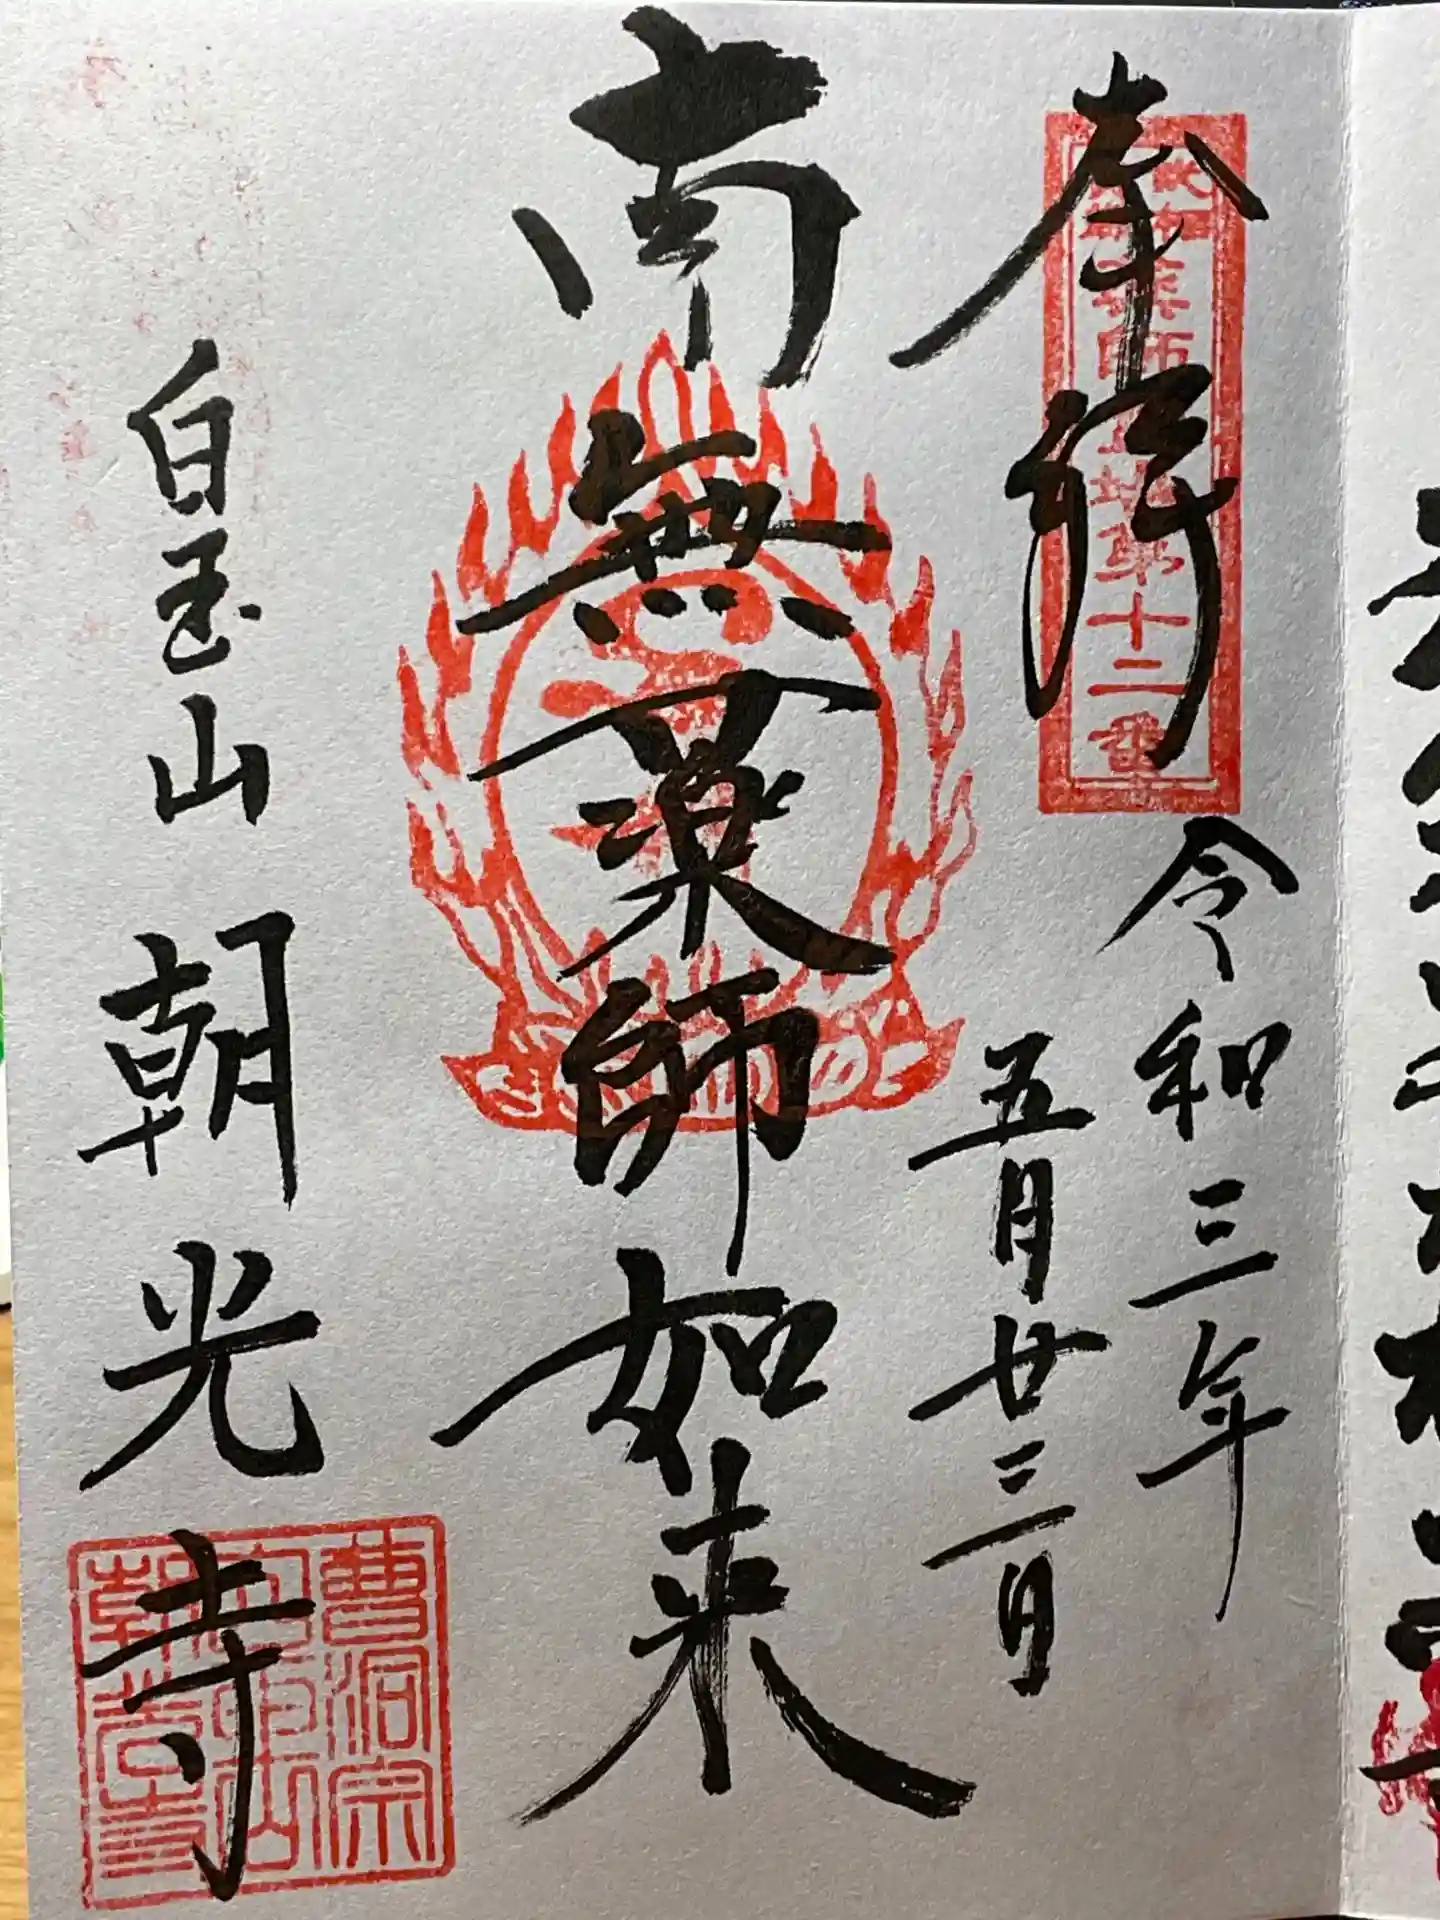 奉拝
薬師霊場第十二番
令和三年
五月廿三日
南無薬師如来
白玉山 朝光寺
曹洞宗
白玉山
朝光寺